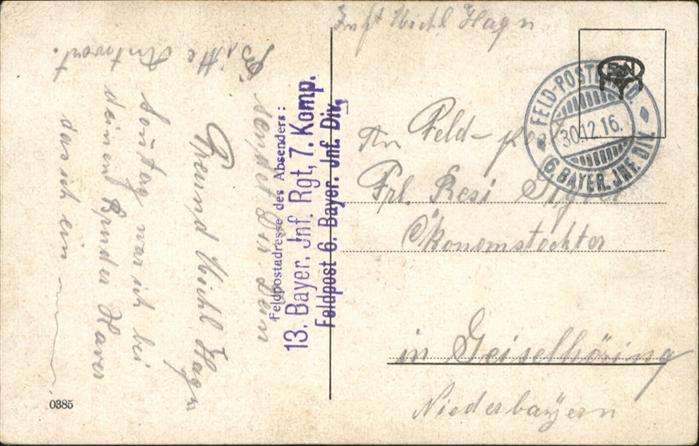 Inft Michl Hagn
FELD-POSTEXP. D.
30.12.16.
6. BAYER. INF. DIV.
An Feld-
Frl. Resi
Ökonomstochter
in Geiselhöring
Niederbayern
Feldpostadresse des Absenders:
13. Bayer. Jnf. Rgt, 7. Komp.
Feldpost 6. Bayer. Jnf. Div.
dein
Freund Michl Hagn
Bitte Antwort.
Sontag war ich bei
deinem Bruder Xaver
das ich ein
0385